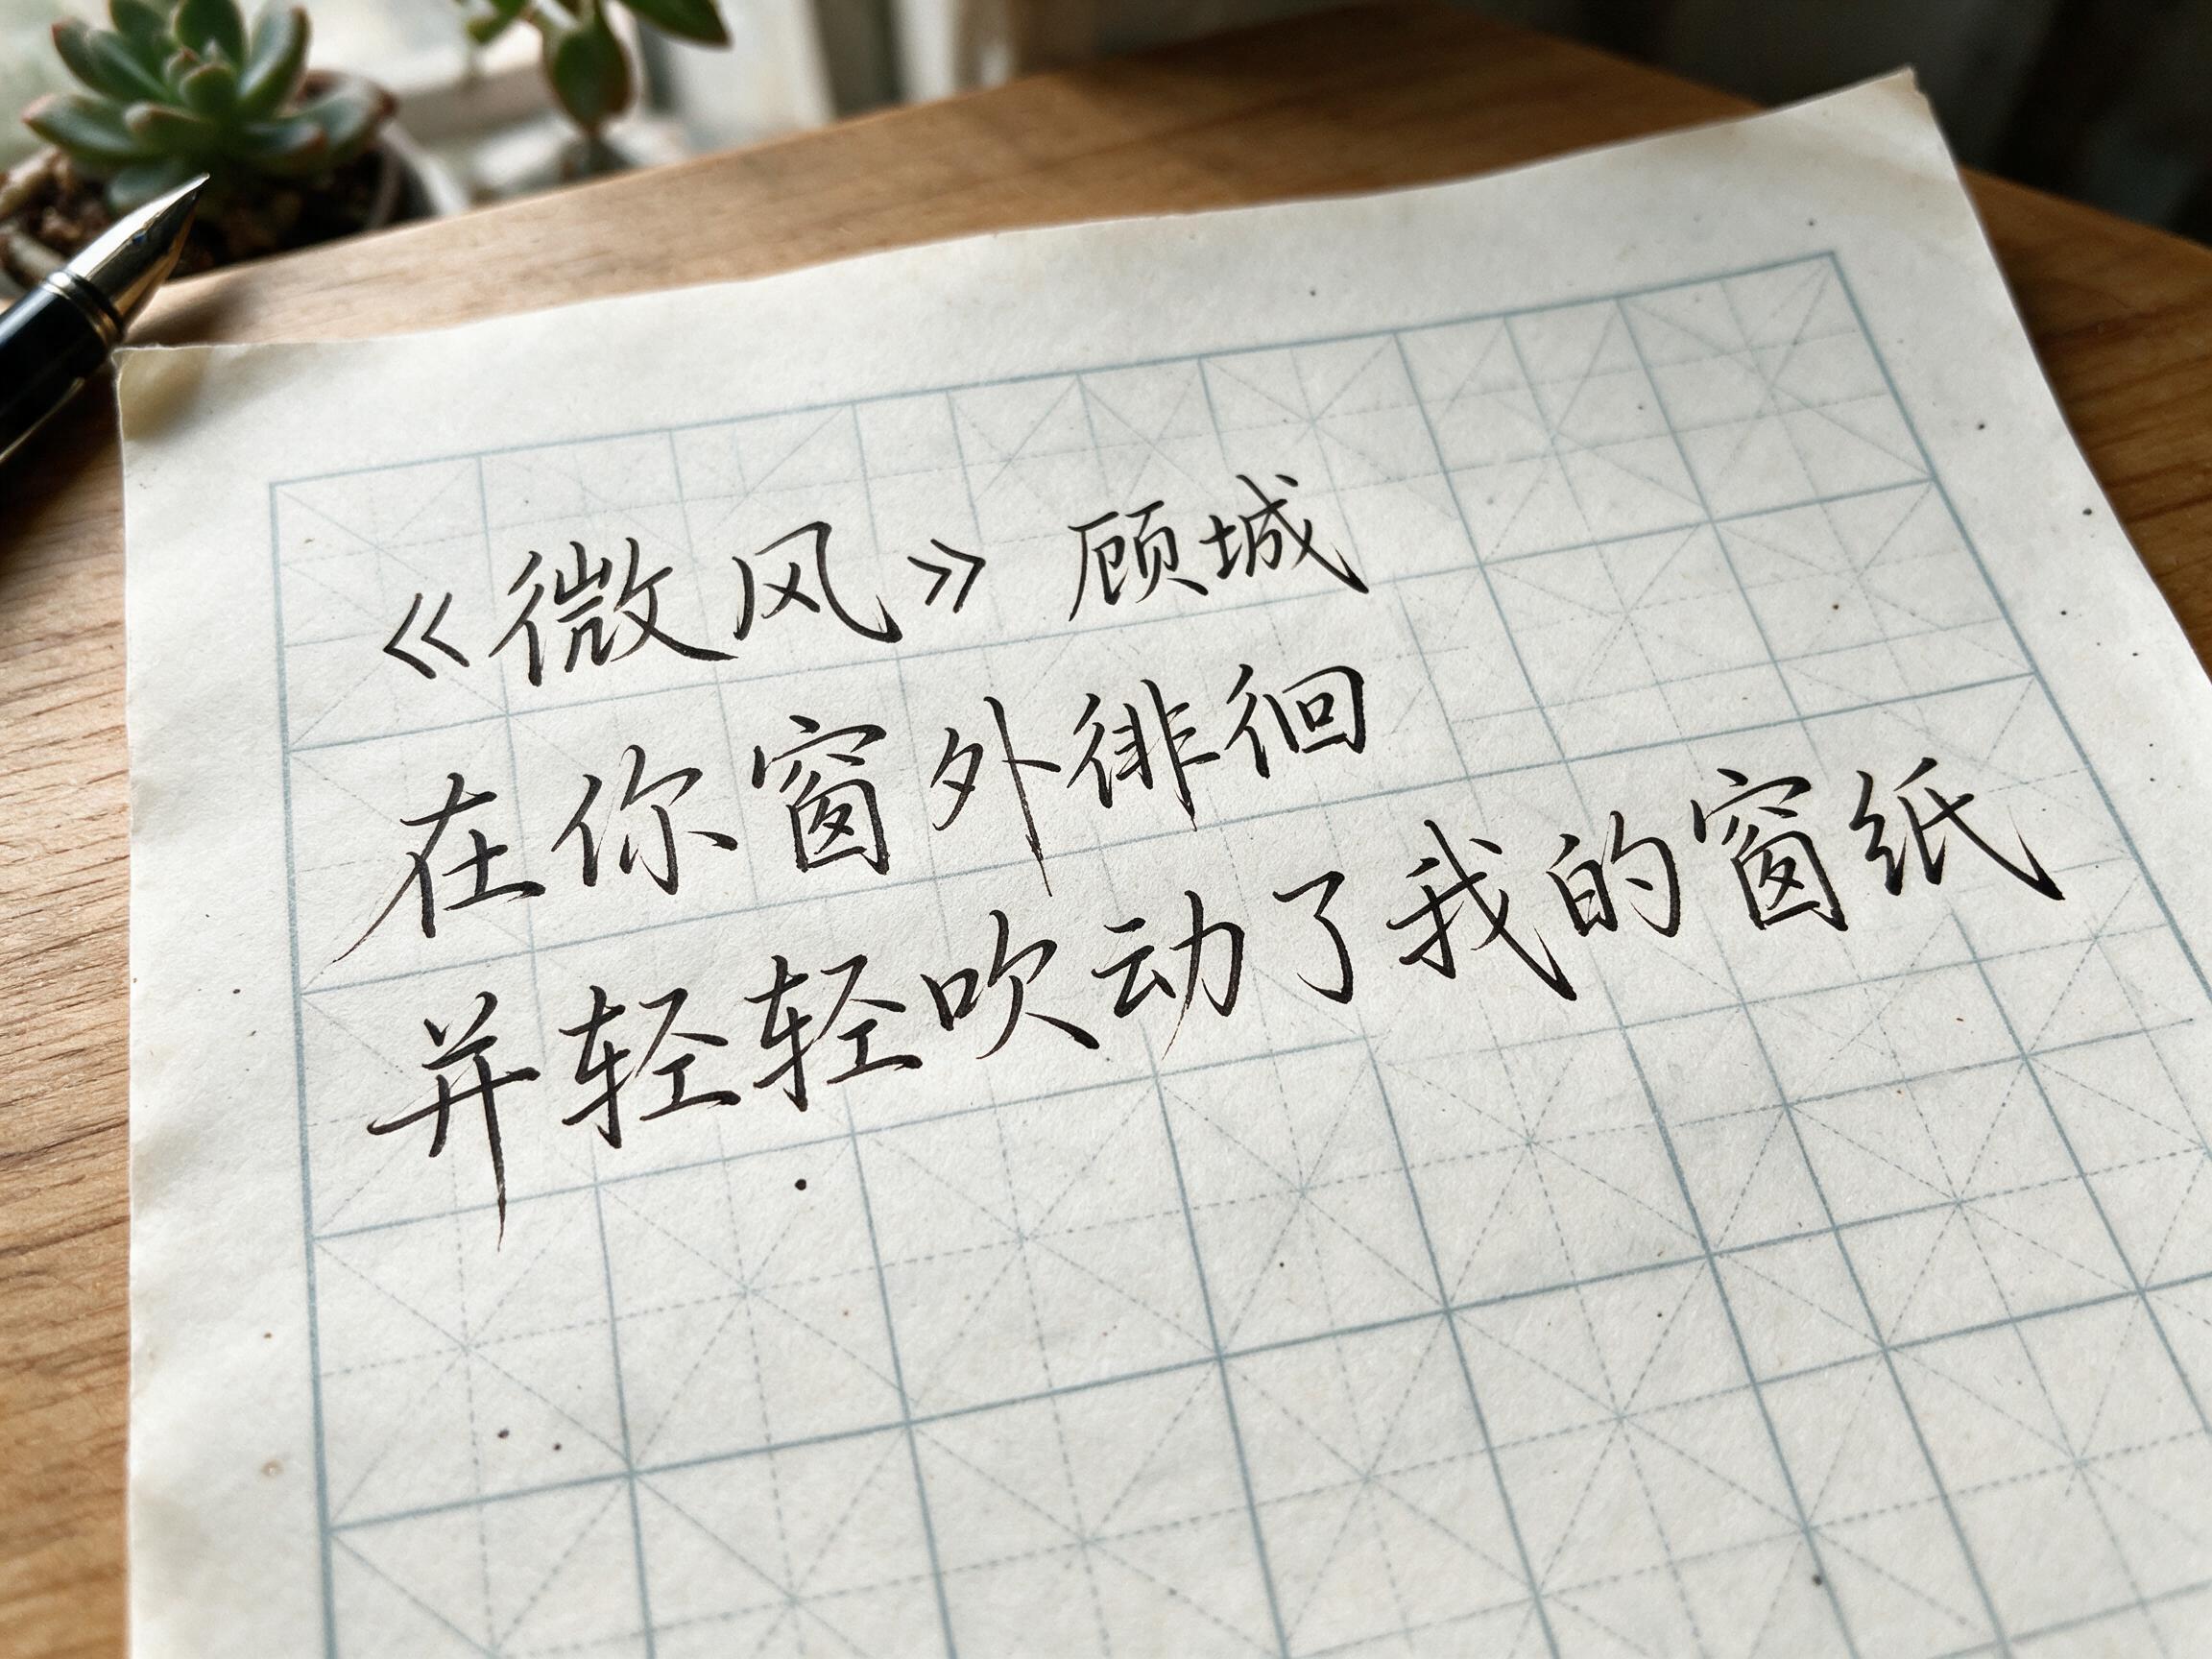 《微风》 顾城
在你窗外徘徊
并轻轻吹动了我的窗纸